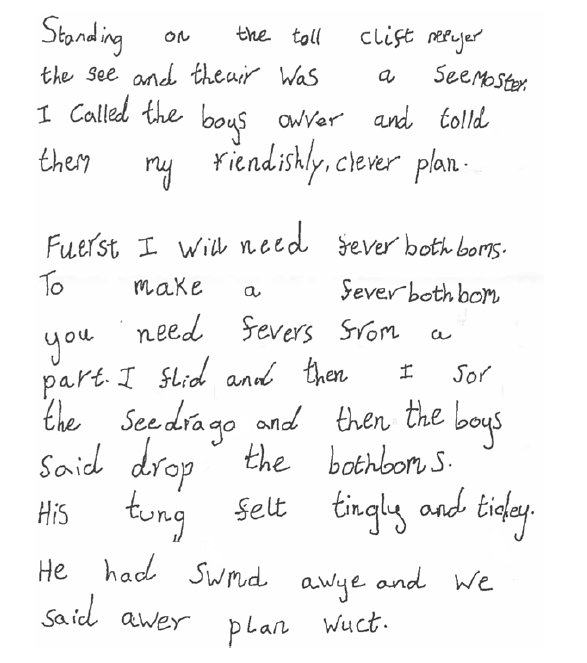 Standing on the toll clift neeyer
the see and theuir was a seemoster.
I Called the boys owver and tolld
them my fiendishly, clever plan.
Fuerst I will need fever both boms.
To make a fever bothbom
you need fevers from a
part. I flid and then I sor
the seedrago and then the boys
said drop the bothboms.
His tung felt tingly and tickey.
He had swmd awye and we
said awer plan wuct.